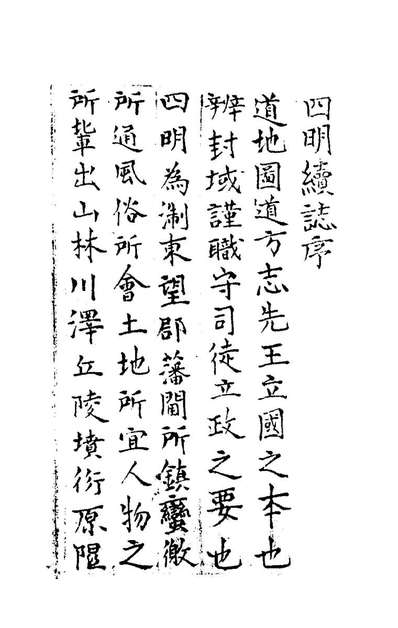 四明續誌序
道地圖道方志先王立國之本也
辨封域謹職守司徒立政之要也
四明為淛東望郡藩閫所鎮蠻徼
所通風俗所會土地所宜人物之
所輩出山林川澤丘陵墳衍原隰